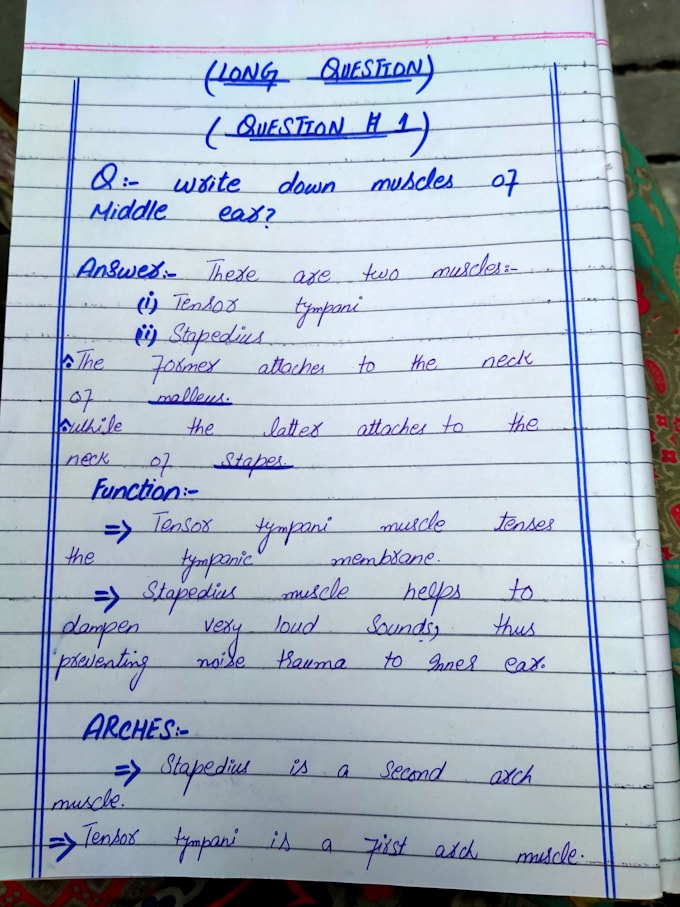 (LONG QUESTION)
(QUESTION # 1)
Q:- write down muscles of
Middle ear?
Answer:- There are two muscles:-
(i) Tensor tympani
(ii) Stapedius
The former attaches to the neck
of malleus.
while the latter attaches to the
neck of stapes.
Function:-
⇒ Tensor tympani muscle tenses
the tympanic membrane.
⇒ Stapedius muscle helps to
dampen very loud sounds, thus
preventing noise trauma to inner ear.
ARCHES:-
⇒ Stapedius is a second arch
muscle.
⇒ Tensor tympani is a first arch muscle.